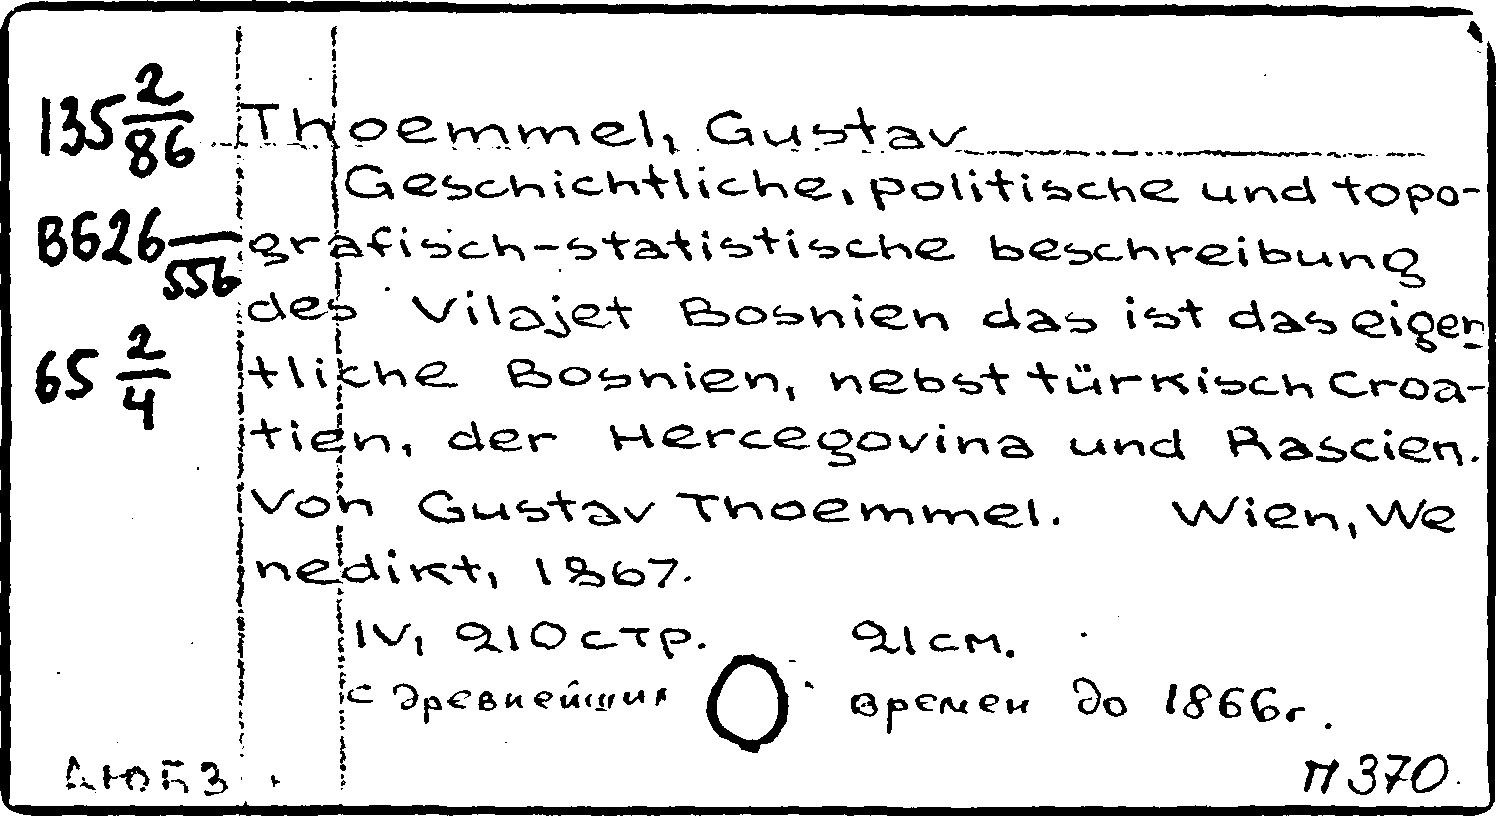 135 2/86
B626 —/556
65 2/4
Thoemmel, Gustav
Geschichtliche, politische und topo-
grafisch-statistische beschreibung
des Vilajet Bosnien das ist das eigen
tliche Bosnien, nebst türkisch Croa-
tien, der Hercegovina und Rascien.
Von Gustav Thoemmel. Wien, We
nedikt, 1867.
IV, 210 стр. 21 см.
с древнейших времен до 1866г.
П 370